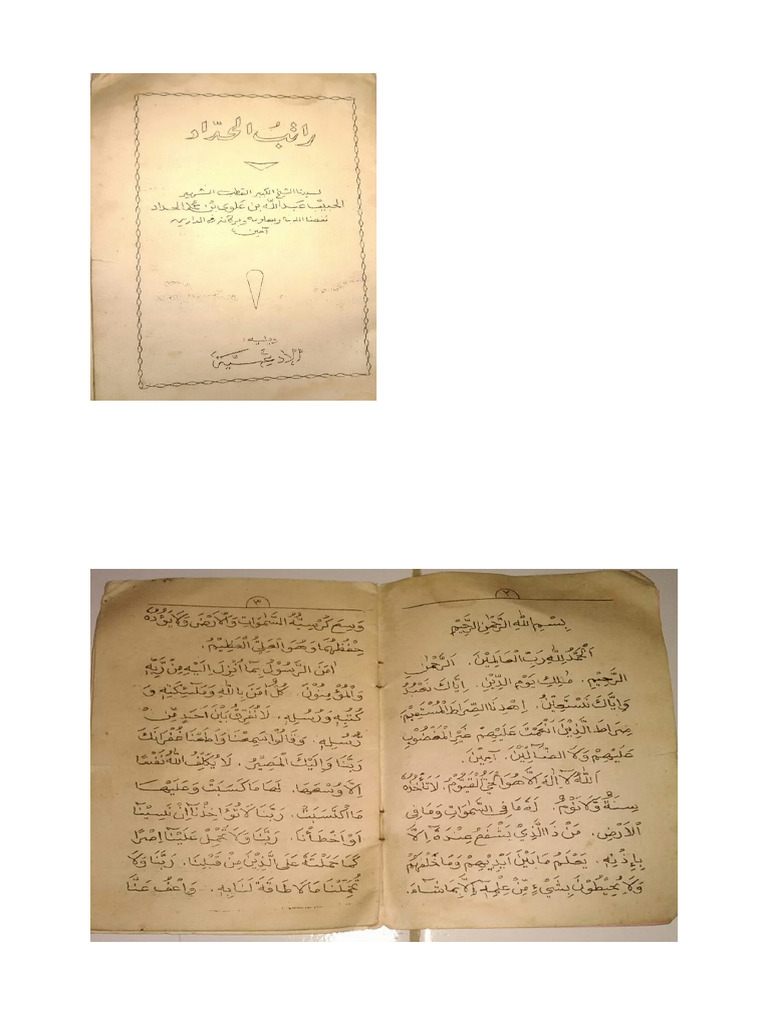 راتب الحداد
لسيدنا الشيخ الكبير القطب الشهير
الحبيب عبد الله بن علوي بن محمد الحداد
نفعنا الله به وبعلومه وبركته في الدارين
آمين
ويليه
٢
بِسْمِ اللهِ الرَّحْمٰنِ الرَّحِيْمِ
اَلْحَمْدُ لِلّٰهِ رَبِّ الْعَالَمِيْنَ. اَلرَّحْمٰنِ
الرَّحِيْمِ. مٰلِكِ يَوْمِ الدِّيْنِ. اِيَّاكَ نَعْبُدُ
وَاِيَّاكَ نَسْتَعِيْنُ. اِهْدِنَا الصِّرَاطَ الْمُسْتَقِيْمَ
صِرَاطَ الَّذِيْنَ اَنْعَمْتَ عَلَيْهِمْ غَيْرِ الْمَغْضُوْبِ
عَلَيْهِمْ وَلَا الضَّالِّيْنَ. آمِيْنَ.
اَللهُ لَا اِلٰهَ اِلَّا هُوَ الْحَيُّ الْقَيُّوْمُ. لَا تَأْخُذُهُ
سِنَةٌ وَلَا نَوْمٌ. لَهُ مَا فِى السَّمٰوَاتِ وَمَا فِى
الْاَرْضِ. مَنْ ذَا الَّذِيْ يَشْفَعُ عِنْدَهُ اِلَّا
بِاِذْنِهِ. يَعْلَمُ مَا بَيْنَ اَيْدِيْهِمْ وَمَا خَلْفَهُمْ
وَلَا يُحِيْطُوْنَ بِشَيْءٍ مِّنْ عِلْمِهِ اِلَّا بِمَا شَآءَ.
٣
وَسِعَ كُرْسِيُّهُ السَّمٰوَاتِ وَالْاَرْضَ وَلَا يَؤُدُهُ
حِفْظُهُمَا وَهُوَ الْعَلِيُّ الْعَظِيْمُ.
اٰمَنَ الرَّسُوْلُ بِمَا اُنْزِلَ اِلَيْهِ مِنْ رَّبِّهِ
وَالْمُؤْمِنُوْنَ. كُلٌّ اٰمَنَ بِاللهِ وَمَلٰئِكَتِهِ وَ
كُتُبِهِ وَرُسُلِهِ. لَا نُفَرِّقُ بَيْنَ اَحَدٍ مِّنْ
رُّسُلِهِ. وَقَالُوْا سَمِعْنَا وَاَطَعْنَا غُفْرَانَكَ
رَبَّنَا وَاِلَيْكَ الْمَصِيْرُ. لَا يُكَلِّفُ اللهُ نَفْسًا
اِلَّا وُسْعَهَا. لَهَا مَا كَسَبَتْ وَعَلَيْهَا
مَا اكْتَسَبَتْ. رَبَّنَا لَا تُؤَاخِذْنَا اِنْ نَسِيْنَا
اَوْ اَخْطَأْنَا. رَبَّنَا وَلَا تَحْمِلْ عَلَيْنَا اِصْرًا
كَمَا حَمَلْتَهُ عَلَى الَّذِيْنَ مِنْ قَبْلِنَا. رَبَّنَا وَلَا
تُحَمِّلْنَا مَا لَا طَاقَةَ لَنَا بِهِ. وَاعْفُ عَنَّا